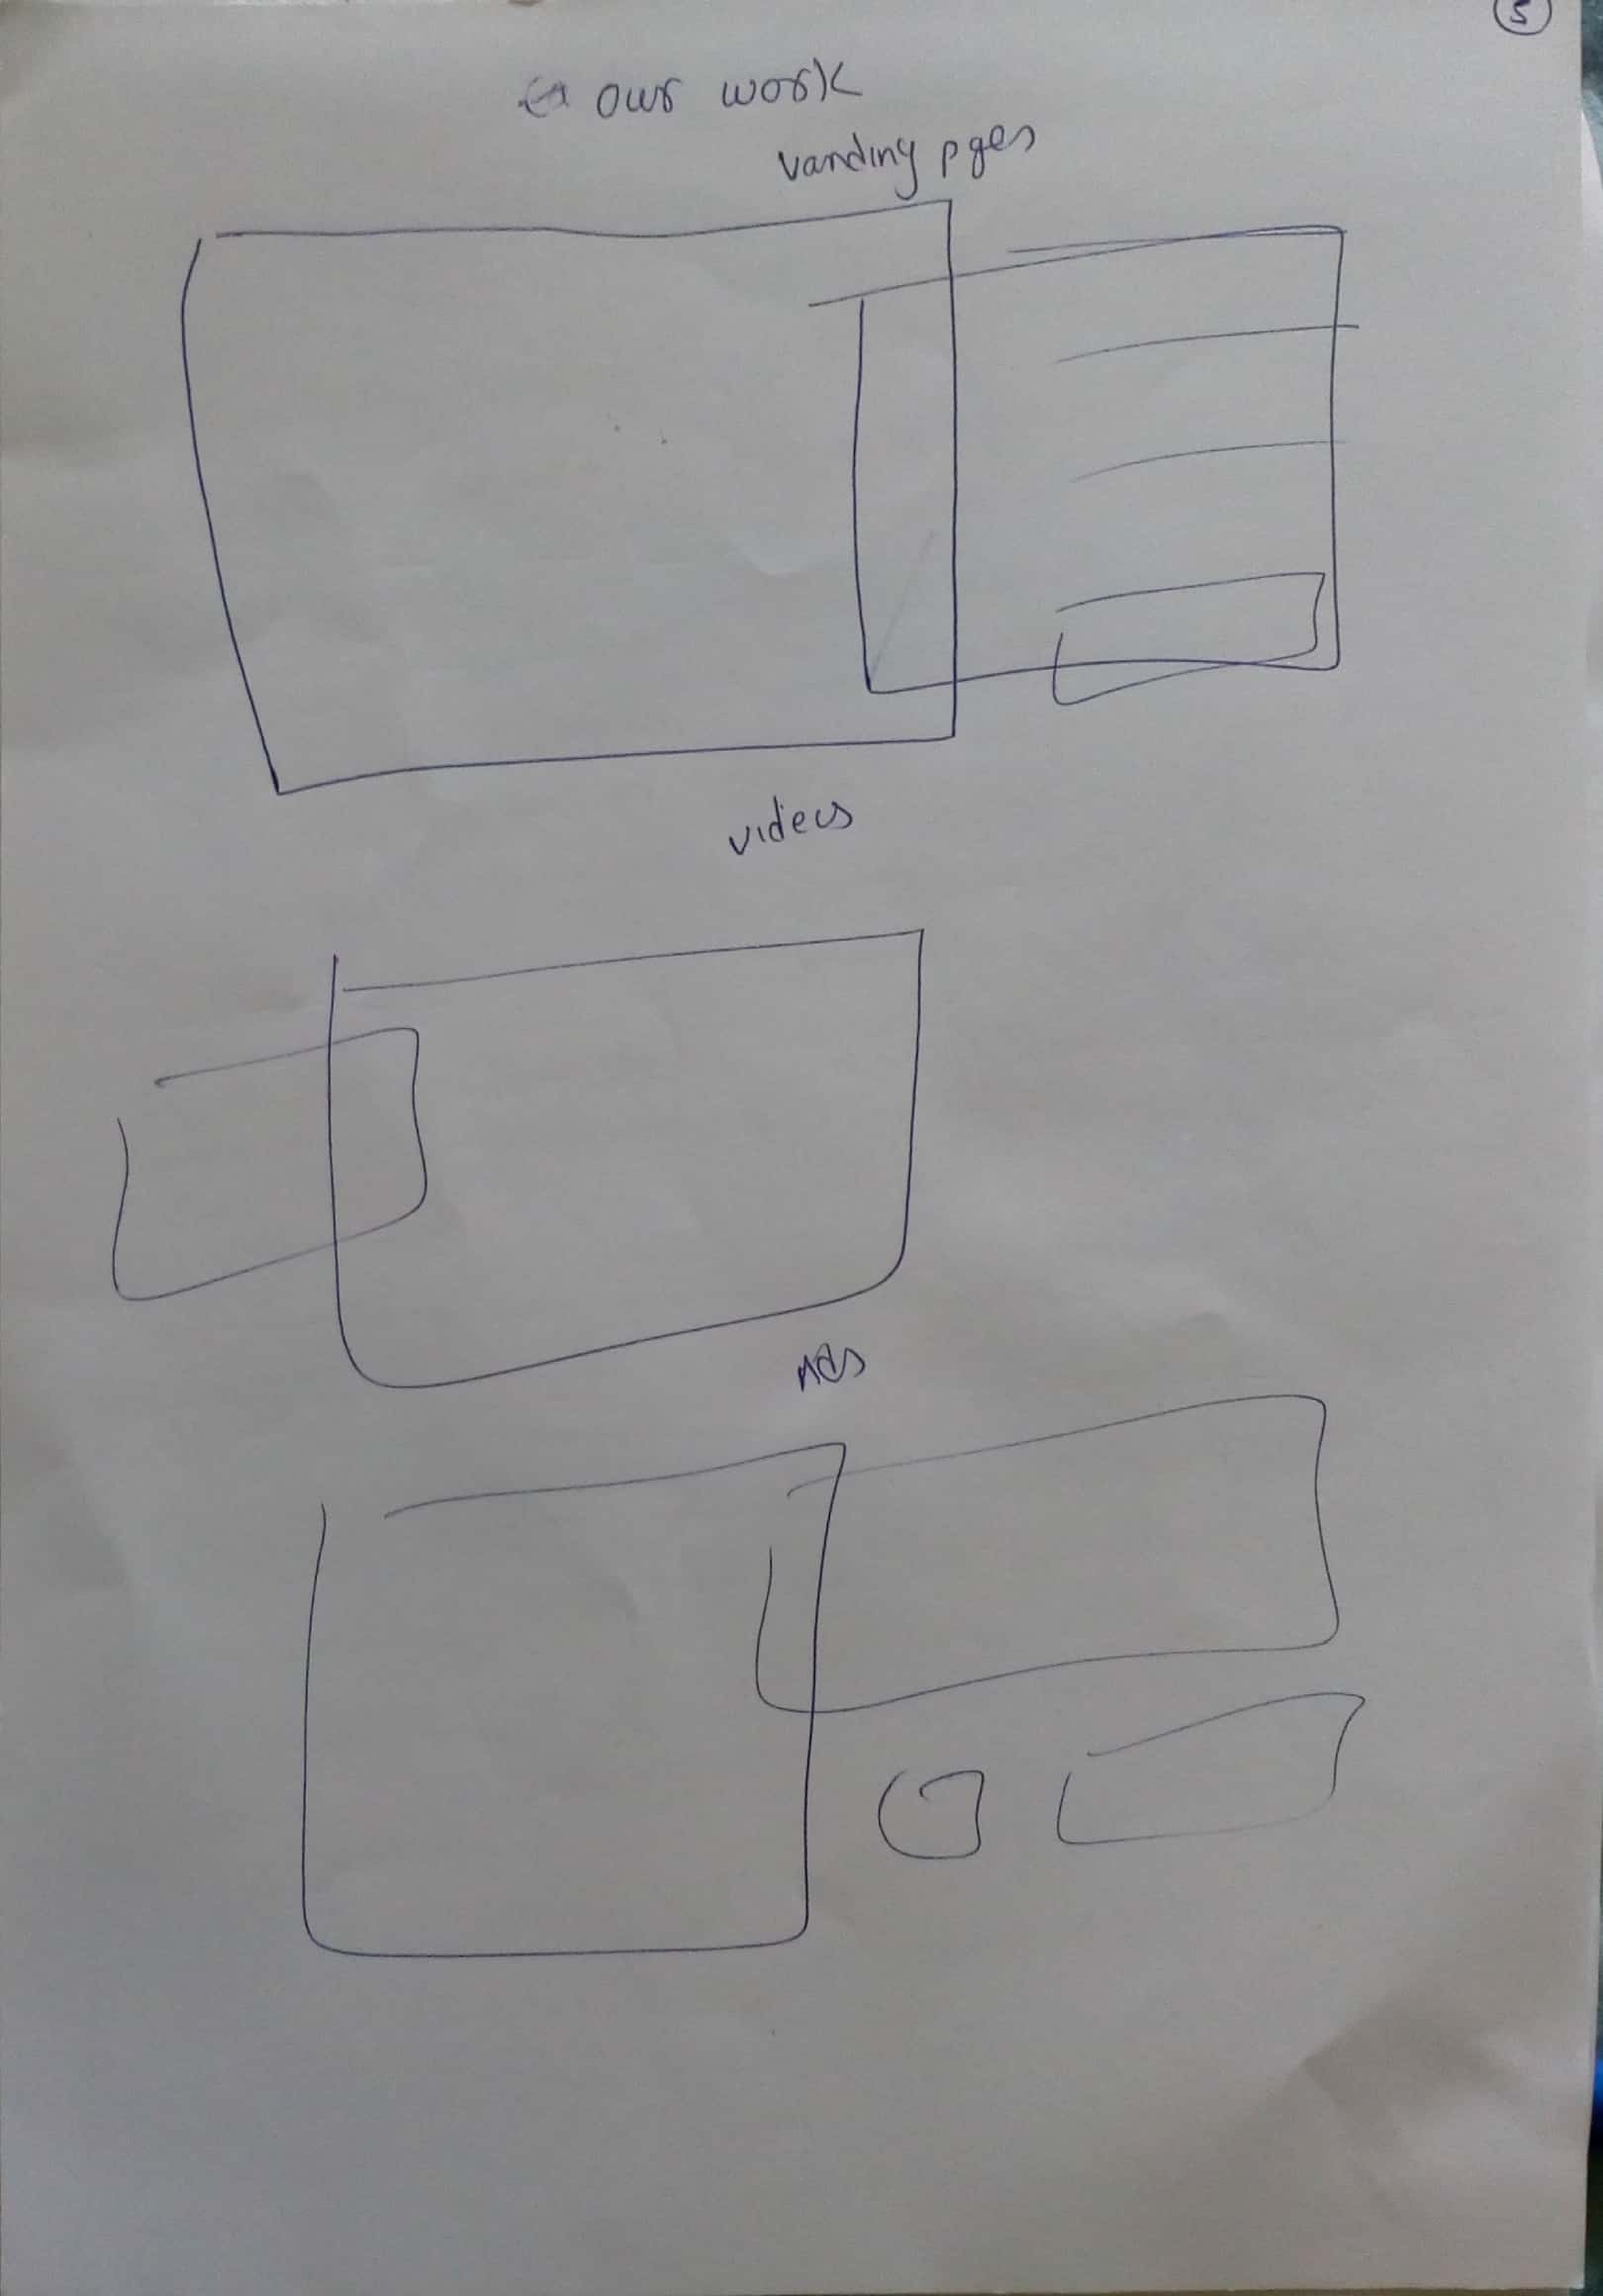 5
our work
vanding pges
videos
Ads